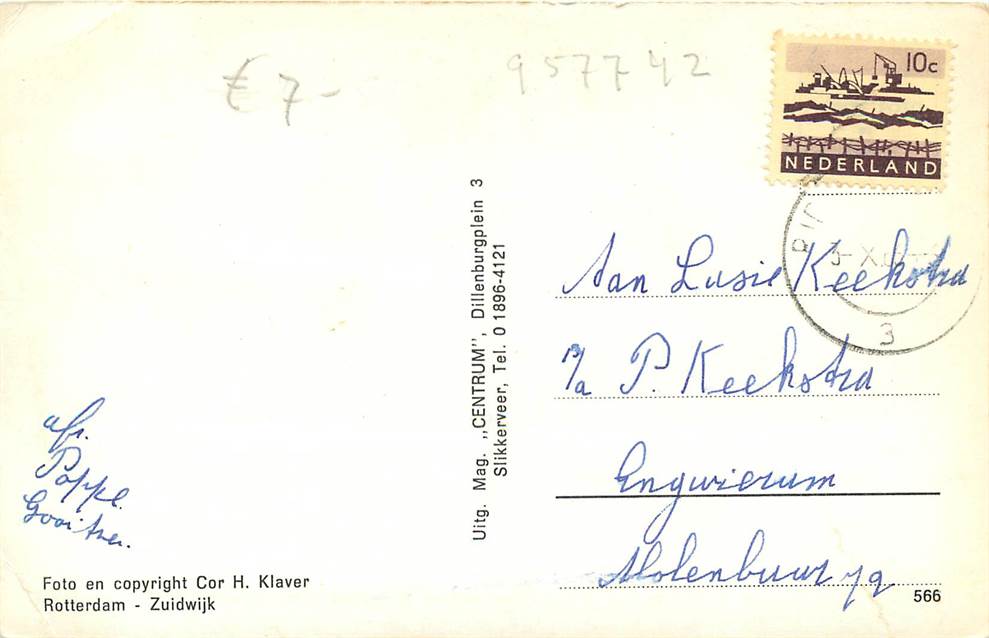 € 7-
957742
10c
NEDERLAND
3
Aan Lusie Keekstra
p/a P. Keekstra
Engwierum
Molenbuur 79
566
Uitg. Mag. ,,CENTRUM'', Dillenburgplein 3
Slikkerveer, Tel. 0 1896-4121
afz.
Poppe.
Gooitzen.
Foto en copyright Cor H. Klaver
Rotterdam - Zuidwijk